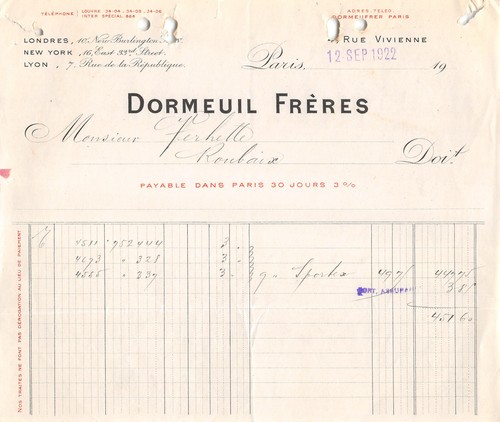 TÉLÉPHONE: LOUVRE 04-04, 04-05, 04-06
INTER SPÉCIAL 268
ADRES. TELEG.
DORMEUFRER PARIS
LONDRES, 10, New Burlington
NEW YORK, 16, East 33rd Street.
LYON, 7, Rue de la République.
RUE VIVIENNE
Paris, 12 SEP. 1922 19
DORMEUIL FRÈRES
Monsieur Ferhelle
Roubaix Doit
PAYABLE DANS PARIS 30 JOURS 3%
NOS TRAITES NE FONT PAS DÉROGATION AU LIEU DE PAIEMENT
4511 752444 3
4673 " 328 3
4555 " 337 3 9 Sportex 49.75 447 75
PORT, ASSURANCE 3 85
451 60